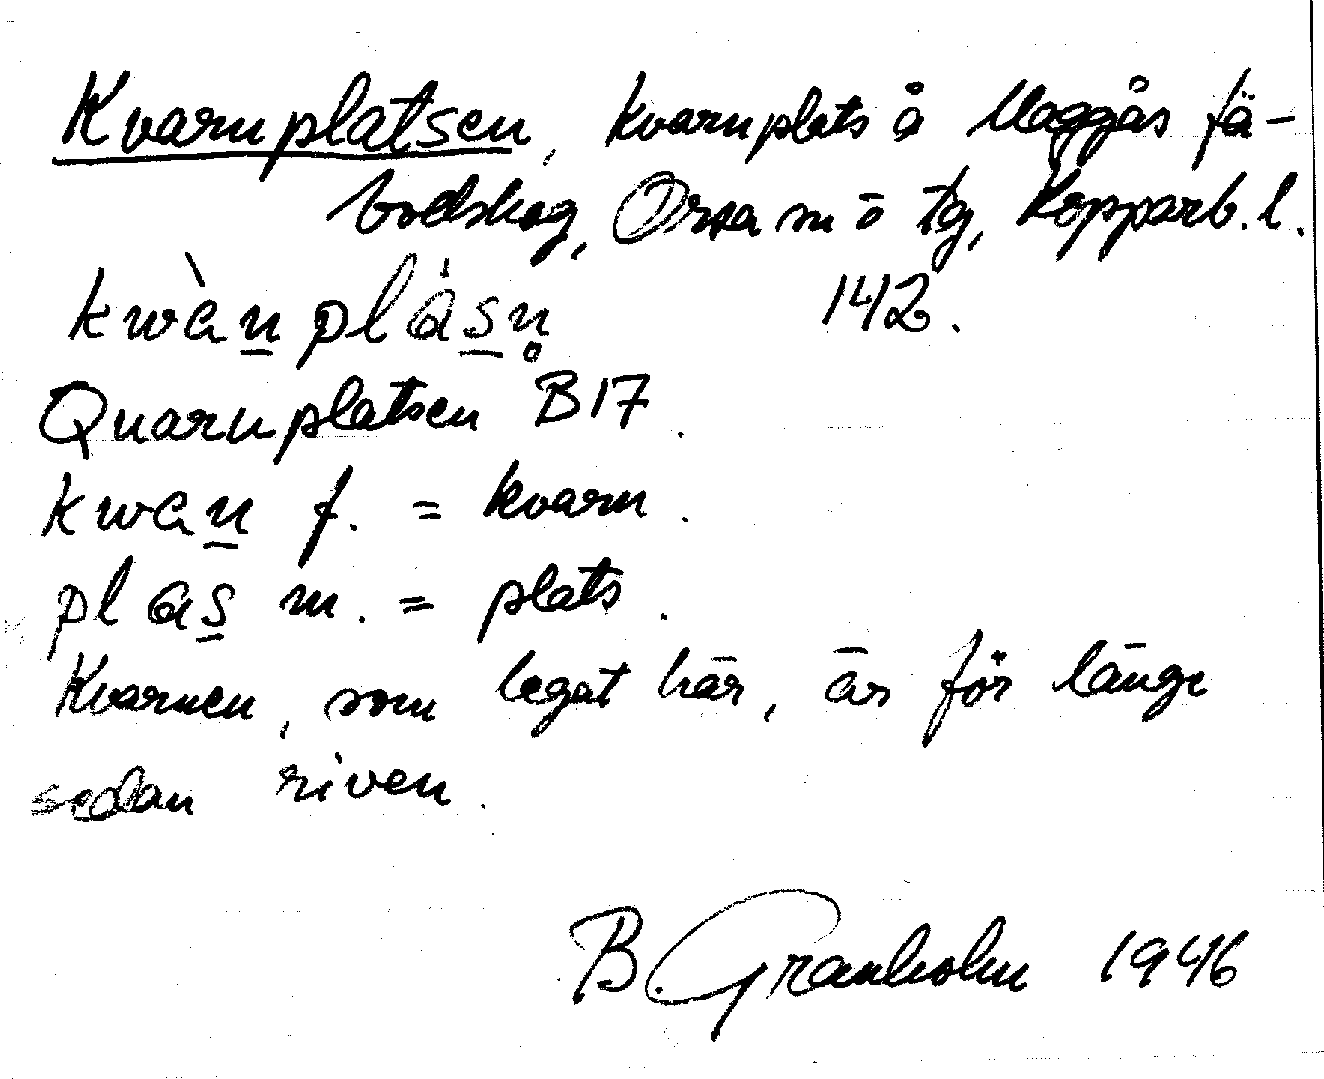 Kvarnplatsen, kvarnplats å Maggås fä-
bodskog, Orsa sn o tg, Kopparb. l.
kwàn̲plás̲n̥ 142.
Quarnplatsen B17.
kwan̲ f. = kvarn.
plas̲ m. = plats.
Kvarnen, som legat här, är för länge
sedan riven.
B. Granholm 1946